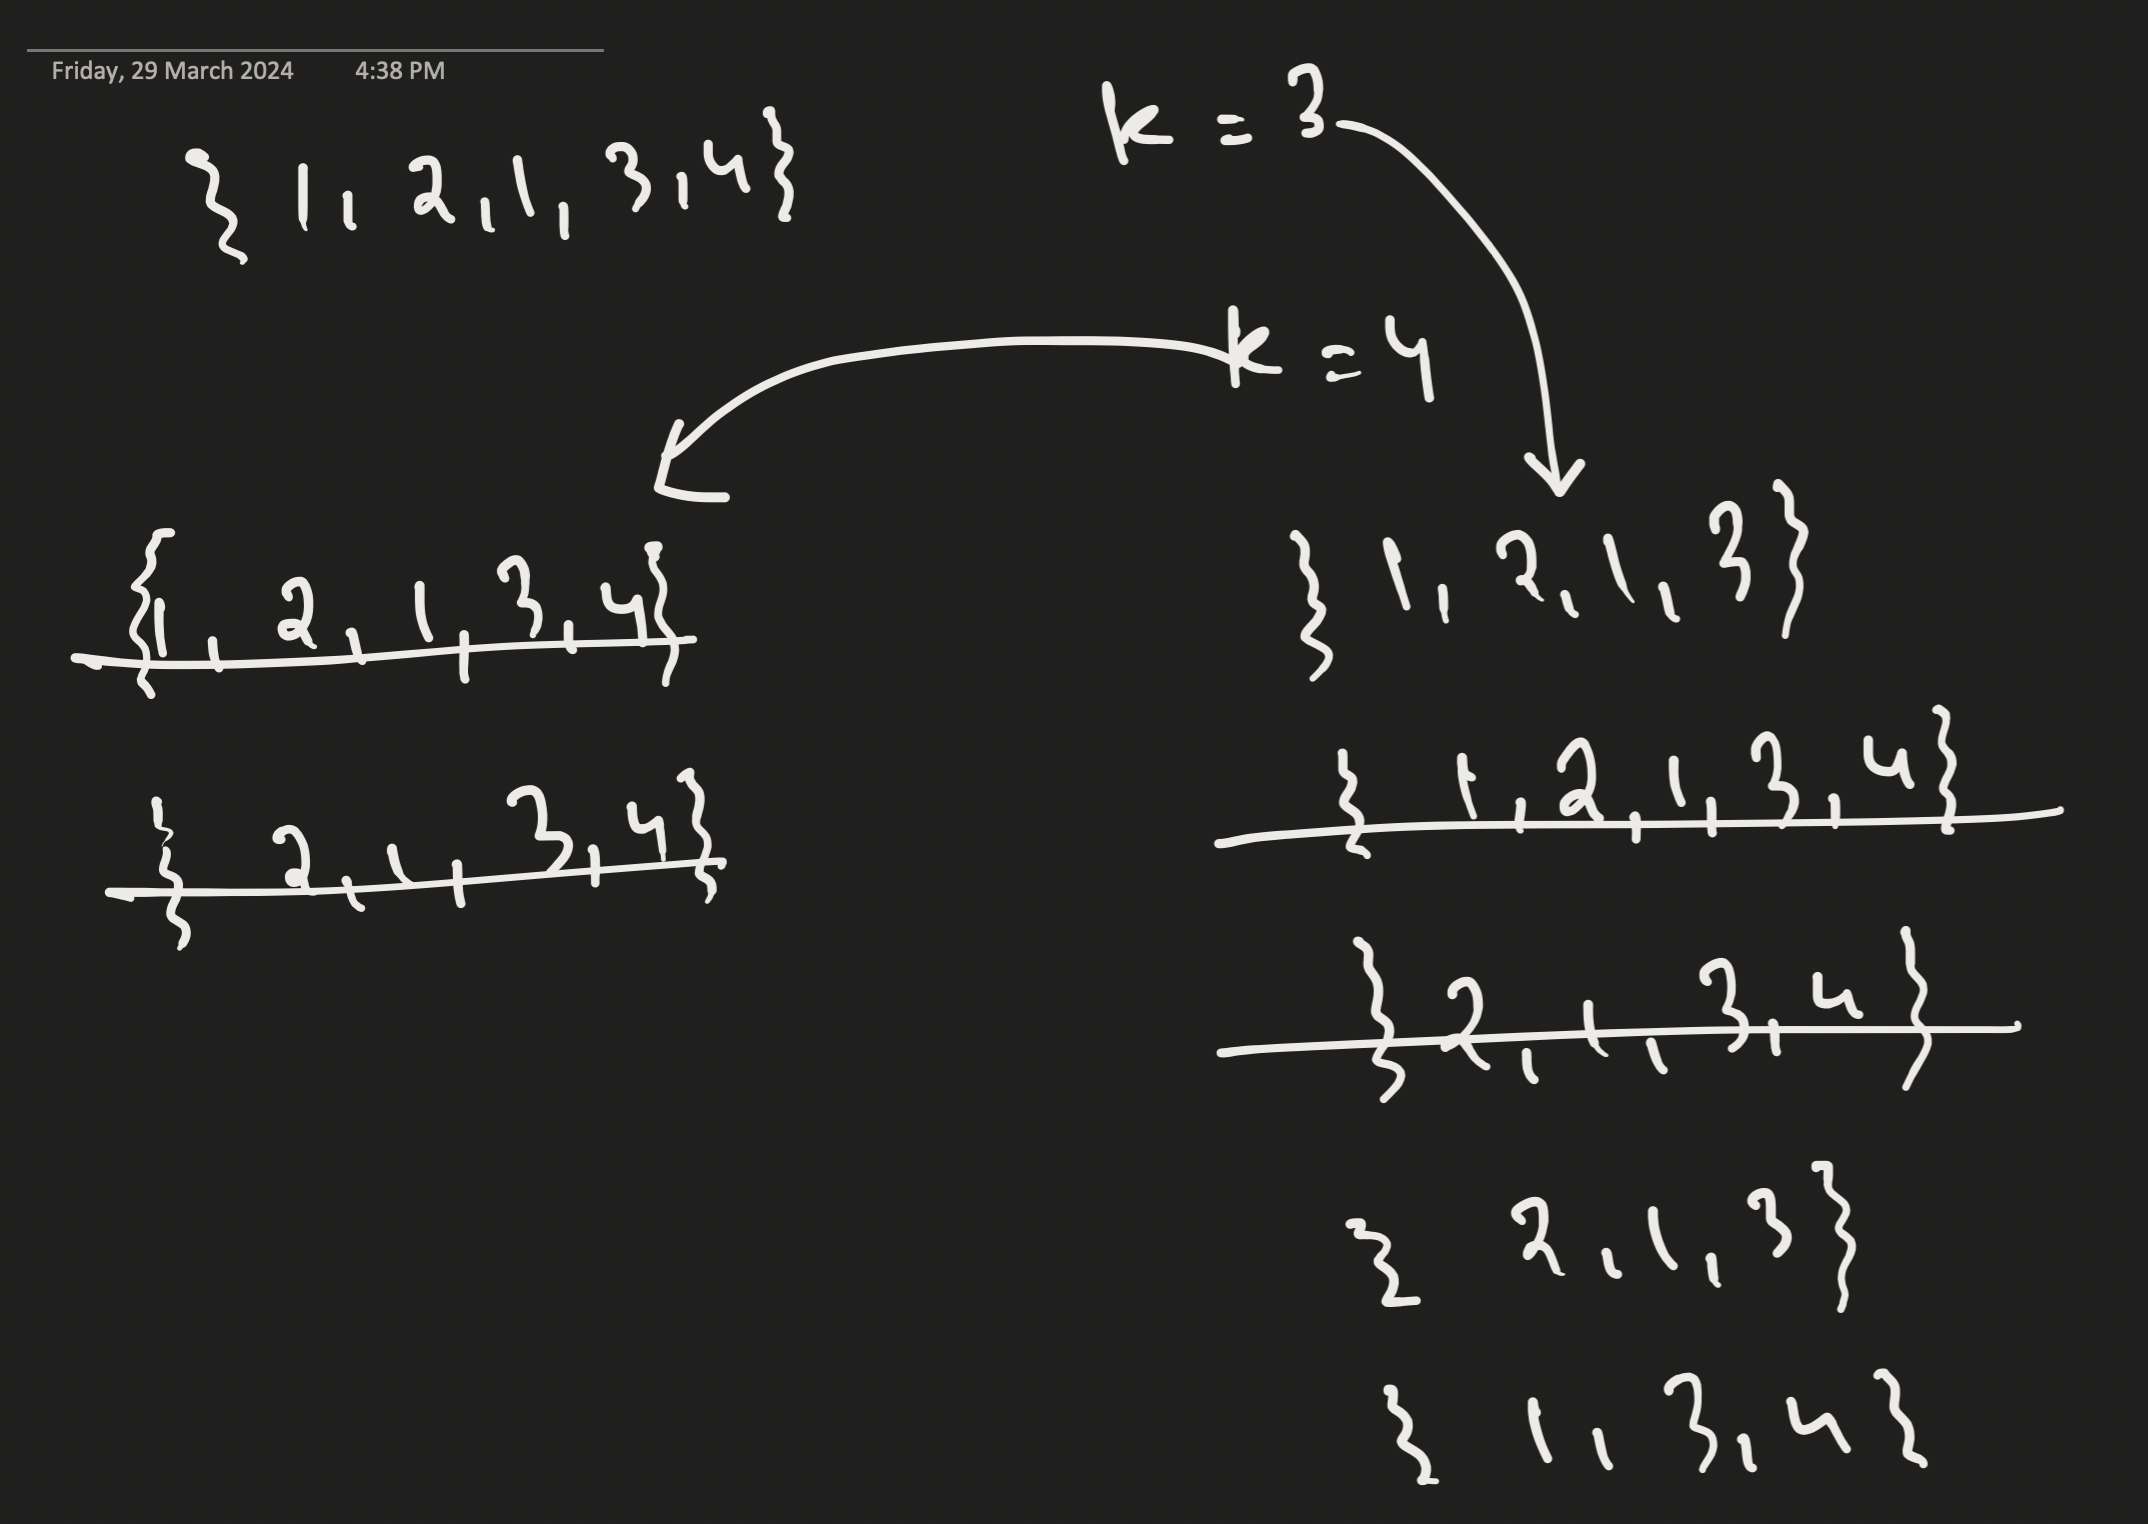 Friday, 29 March 2024 4:38 PM
{ 1, 2, 1, 3, 4 }
k = 3
k = 4
{ 1, 2, 1, 3, 4 }
{ 2, 1, 3, 4 }
{ 1, 2, 1, 3 }
{ 1, 2, 1, 3, 4 }
{ 2, 1, 3, 4 }
{ 2, 1, 3 }
{ 1, 3, 4 }